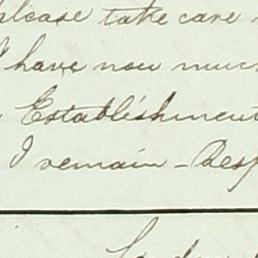 please take care
I have now much
Establishment
I remain - Resp